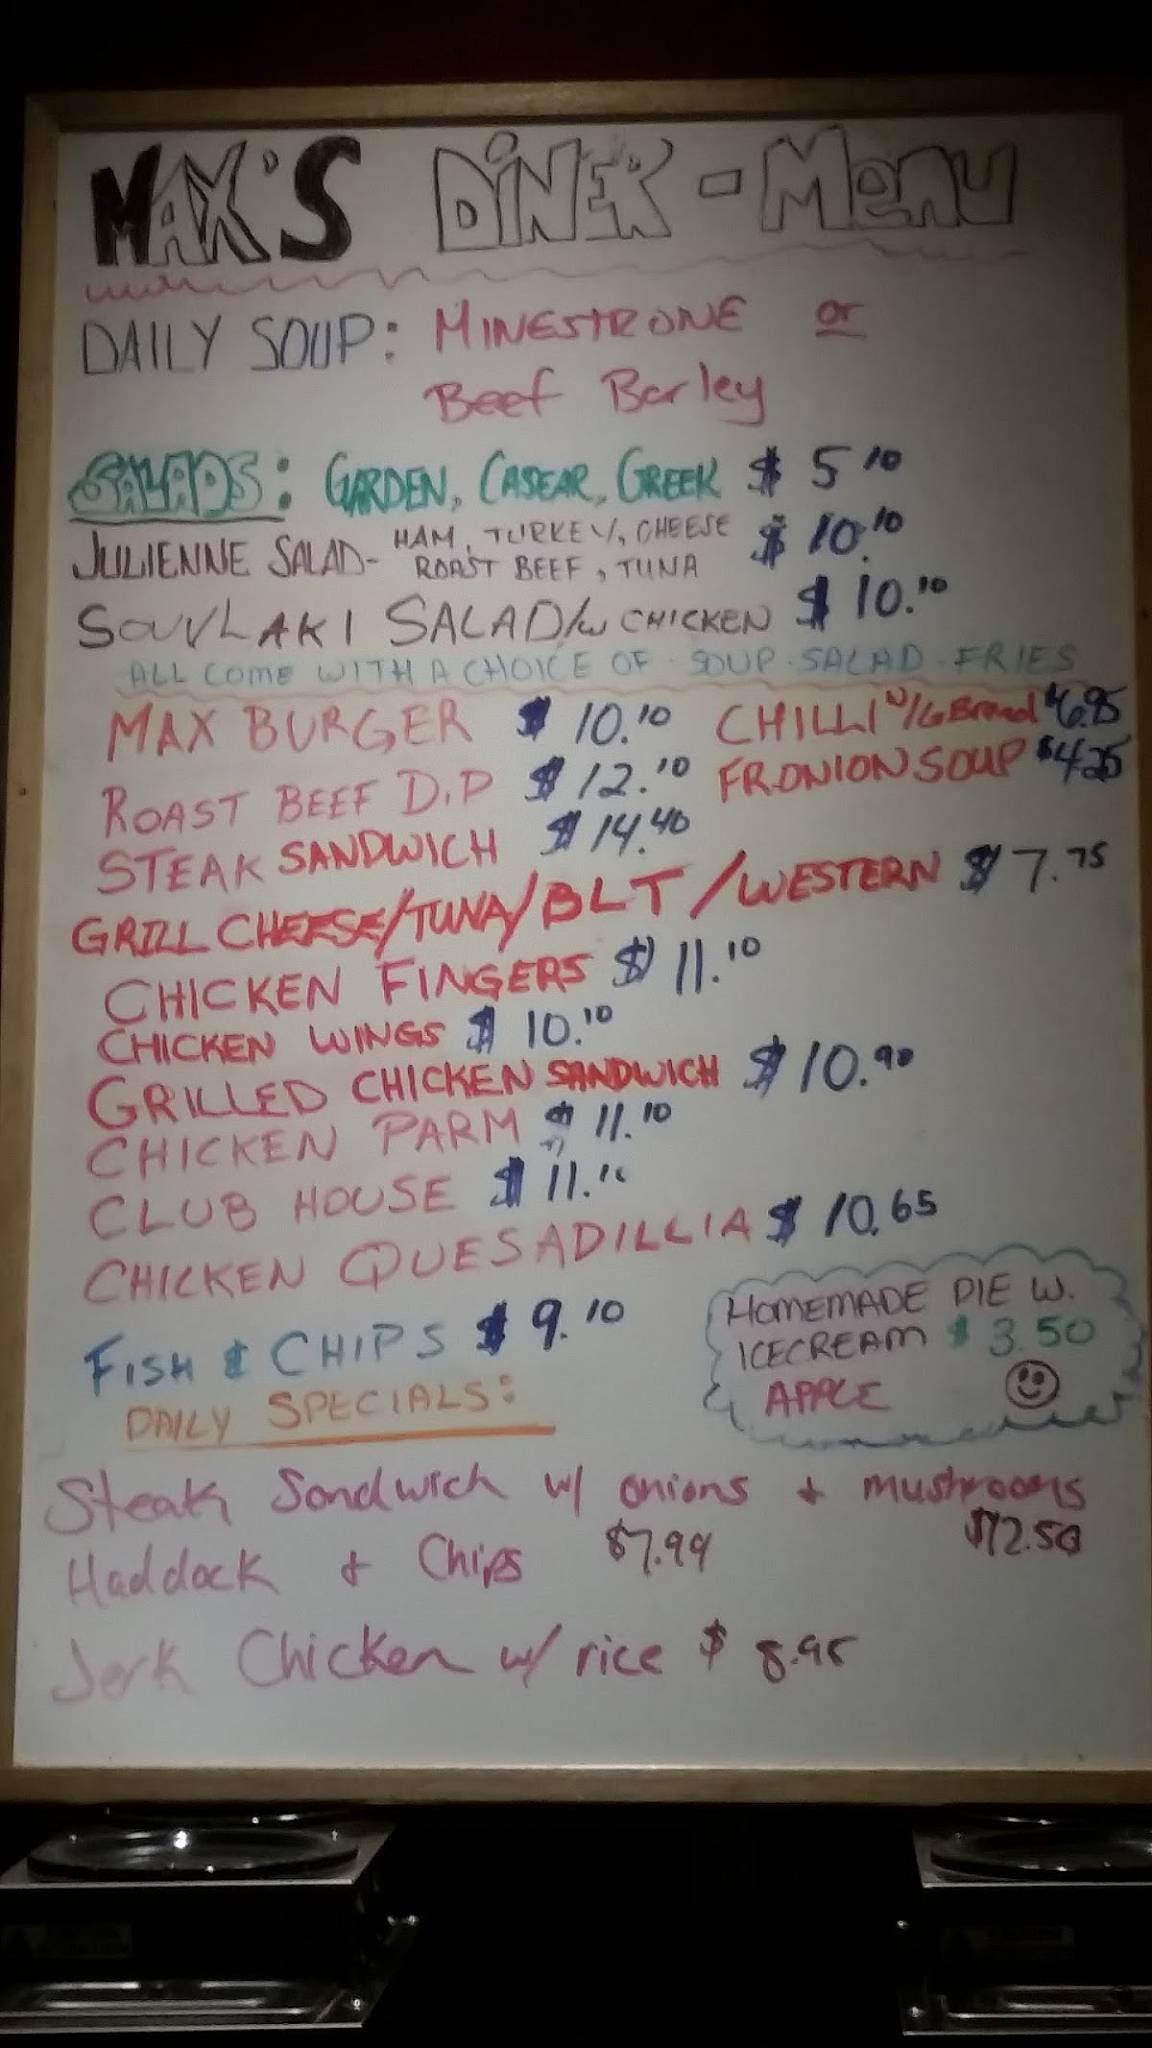 MAX'S DINER - MENU
DAILY SOUP: MINESTRONE or
Beef Barley
SALADS: GARDEN, CASEAR, GREEK $ 5 10
JULIENNE SALAD- HAM, TURKEY, CHEESE $ 10.10
ROAST BEEF, TUNA
SOUVLAKI SALAD/w CHICKEN $ 10.10
ALL COME WITH A CHOICE OF - SOUP - SALAD - FRIES
MAX BURGER $ 10.10 CHILLI w/G Bread $6.95
ROAST BEEF DIP $ 12.10 FR.ONION SOUP $4.25
STEAK SANDWICH $ 14.40
GRILL CHEESE/TUNA/BLT/WESTERN $ 7.75
CHICKEN FINGERS $ 11.10
CHICKEN WINGS $ 10.10
GRILLED CHICKEN SANDWICH $ 10.90
CHICKEN PARM $ 11.10
CLUB HOUSE $ 11.10
CHICKEN QUESADILLIA $ 10.65
FISH & CHIPS $ 9.10
HOMEMADE PIE W.
ICECREAM $ 3.50
APPLE
DAILY SPECIALS:
Steak Sandwich w/ onions + mushrooms
$12.50
Haddock + Chips $7.99
Jerk Chicken w/ rice $ 8.95